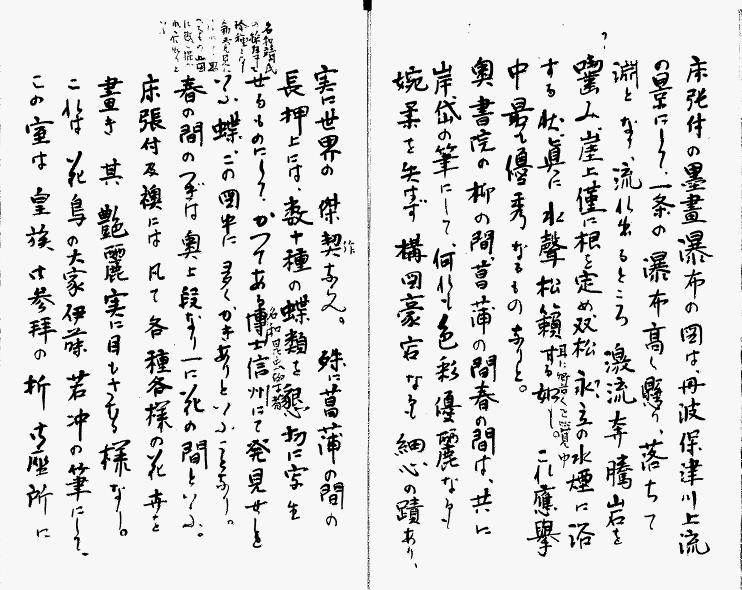 床張付の墨畫瀑布の図は、丹波保津川上流
の景にして、一条の瀑布高く騒り、落ちて
淵となり、流れ出るところ激流奔騰岩を
?
噛み、崖上僅に根を定め双松永立の水煙に浴
する状、真に水聲松籟する如し。これ應擧
中最も優秀なるものなりと。
奥書院の柳の間、菖蒲の間春の間は、共に
岸岱の筆にして、何れも色彩優麗なるも
婉柔を失はず構図豪宕なるも細心の蹟あり、
実に世界の傑契ならん。殊に菖蒲の間の
作
長押上には、数十種の蝶類を懇切に写生
せるものにして、かつてある博士信州にて発見せしと
名和昆虫
いふ蝶、この図中に多くかきありといふことなり。
名和靖氏
春の間のつぎは奥上段なり一に花の間といふ、
床張付及襖には凡て各種各様の花卉を
畫き其艶麗実に目もさむる様なり。
これは花鳥の大家伊藤若冲の筆にして、
この室は皇族御参拝の折御座所に